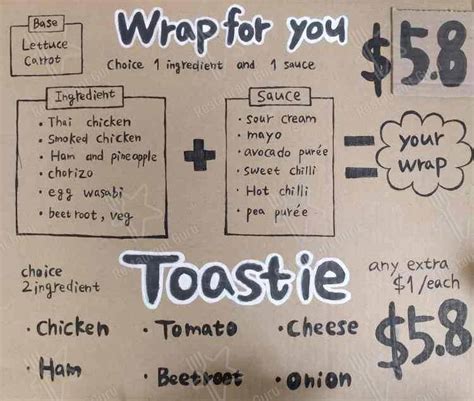 Base
Lettuce
Carrot
Wrap for you
Choice 1 ingredient and 1 sauce
$5.8
Ingredient
• Thai chicken
• Smoked chicken
• Ham and pineapple
• chorizo
• egg wasabi
• beetroot, veg
+
Sauce
• sour cream
• mayo
• avocado purée
• sweet chilli
• Hot chilli
• pea purée
=
your
wrap
choice
2 ingredient
Toastie
any extra
$1/each
$5.8
• Chicken
• Tomato
• Cheese
• Ham
• Beetroot
• Onion